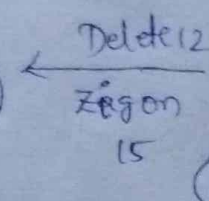 Delete 12
Zigon
15